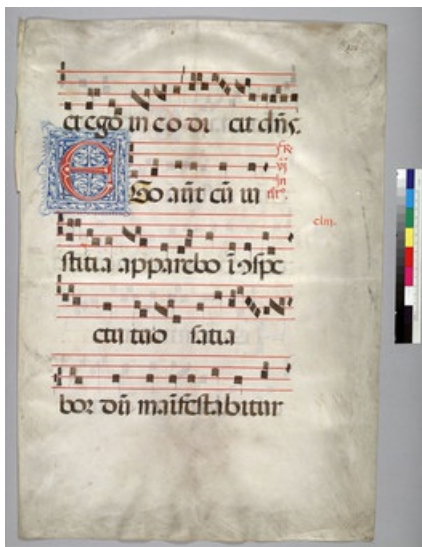 et ego in eo di cit dn̄s.
EGo aūt cū in
stitia apparebo ī ɔspe
ctu tuo satia
bor dū maīfestabitur